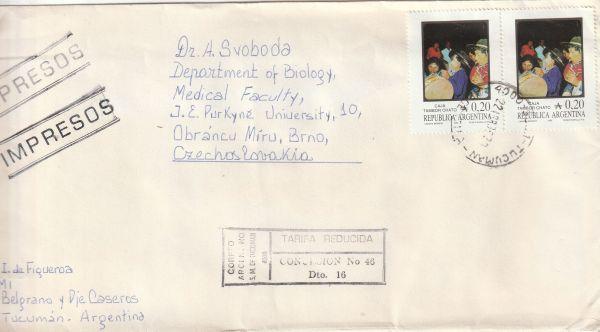 IMPRESOS
IMPRESOS
Dr. A. Svoboda
Department of Biology,
Medical Faculty,
J. E. Purkyně University, 10,
Obráncu Míru, Brno,
Czechoslovakia
CAJA
TAMBOR CHATO
₳ 0,20
REPUBLICA ARGENTINA
CAJA
TAMBOR CHATO
₳ 0,20
REPUBLICA ARGENTINA
4000
TUCUMAN
CORREO
ARGENTINO
S. M. DE TUCUMAN
4000
TARIFA REDUCIDA
CONCESION No 46
Dto. 16
I. de Figueroa
M1
Belgrano y Pje Caseros
Tucumán - Argentina